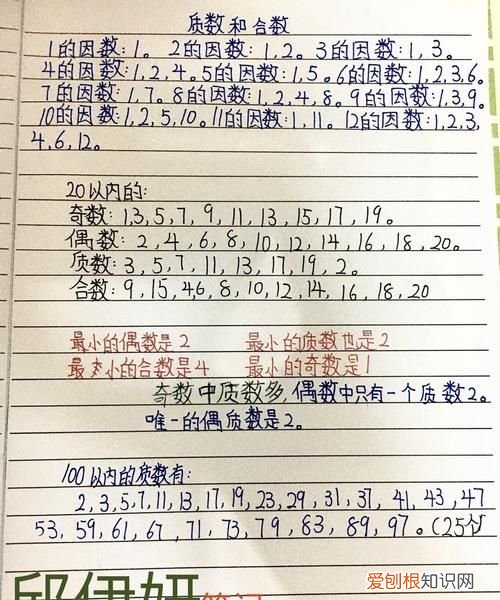 质数和合数
1的因数:1。 2的因数:1,2。3的因数:1,3。
4的因数:1,2,4。5的因数:1,5。6的因数:1,2,3,6。
7的因数:1,7。8的因数:1,2,4,8。9的因数:1,3,9。
10的因数:1,2,5,10。11的因数:1,11。12的因数:1,2,3
4,6,12。
20以内的:
奇数:1,3,5,7,9,11,13,15,17,19。
偶数:2,4,6,8,10,12,14,16,18,20。
质数:3,5,7,11,13,17,19,2。
合数:9,15,4,6,8,10,12,14,16,18,20
最小的偶数是2 最小的质数也是2
最小的合数是4 最小的奇数是1
奇数中质数多,偶数中只有一个质数2。
唯一的偶质数是2。
100以内的质数有:
2,3,5,7,11,13,17,19,23,29,31,37,41,43,47
53,59,61,67,71,73,79,83,89,97。(25个)
邱伊妍笔记
爱刨根知识网